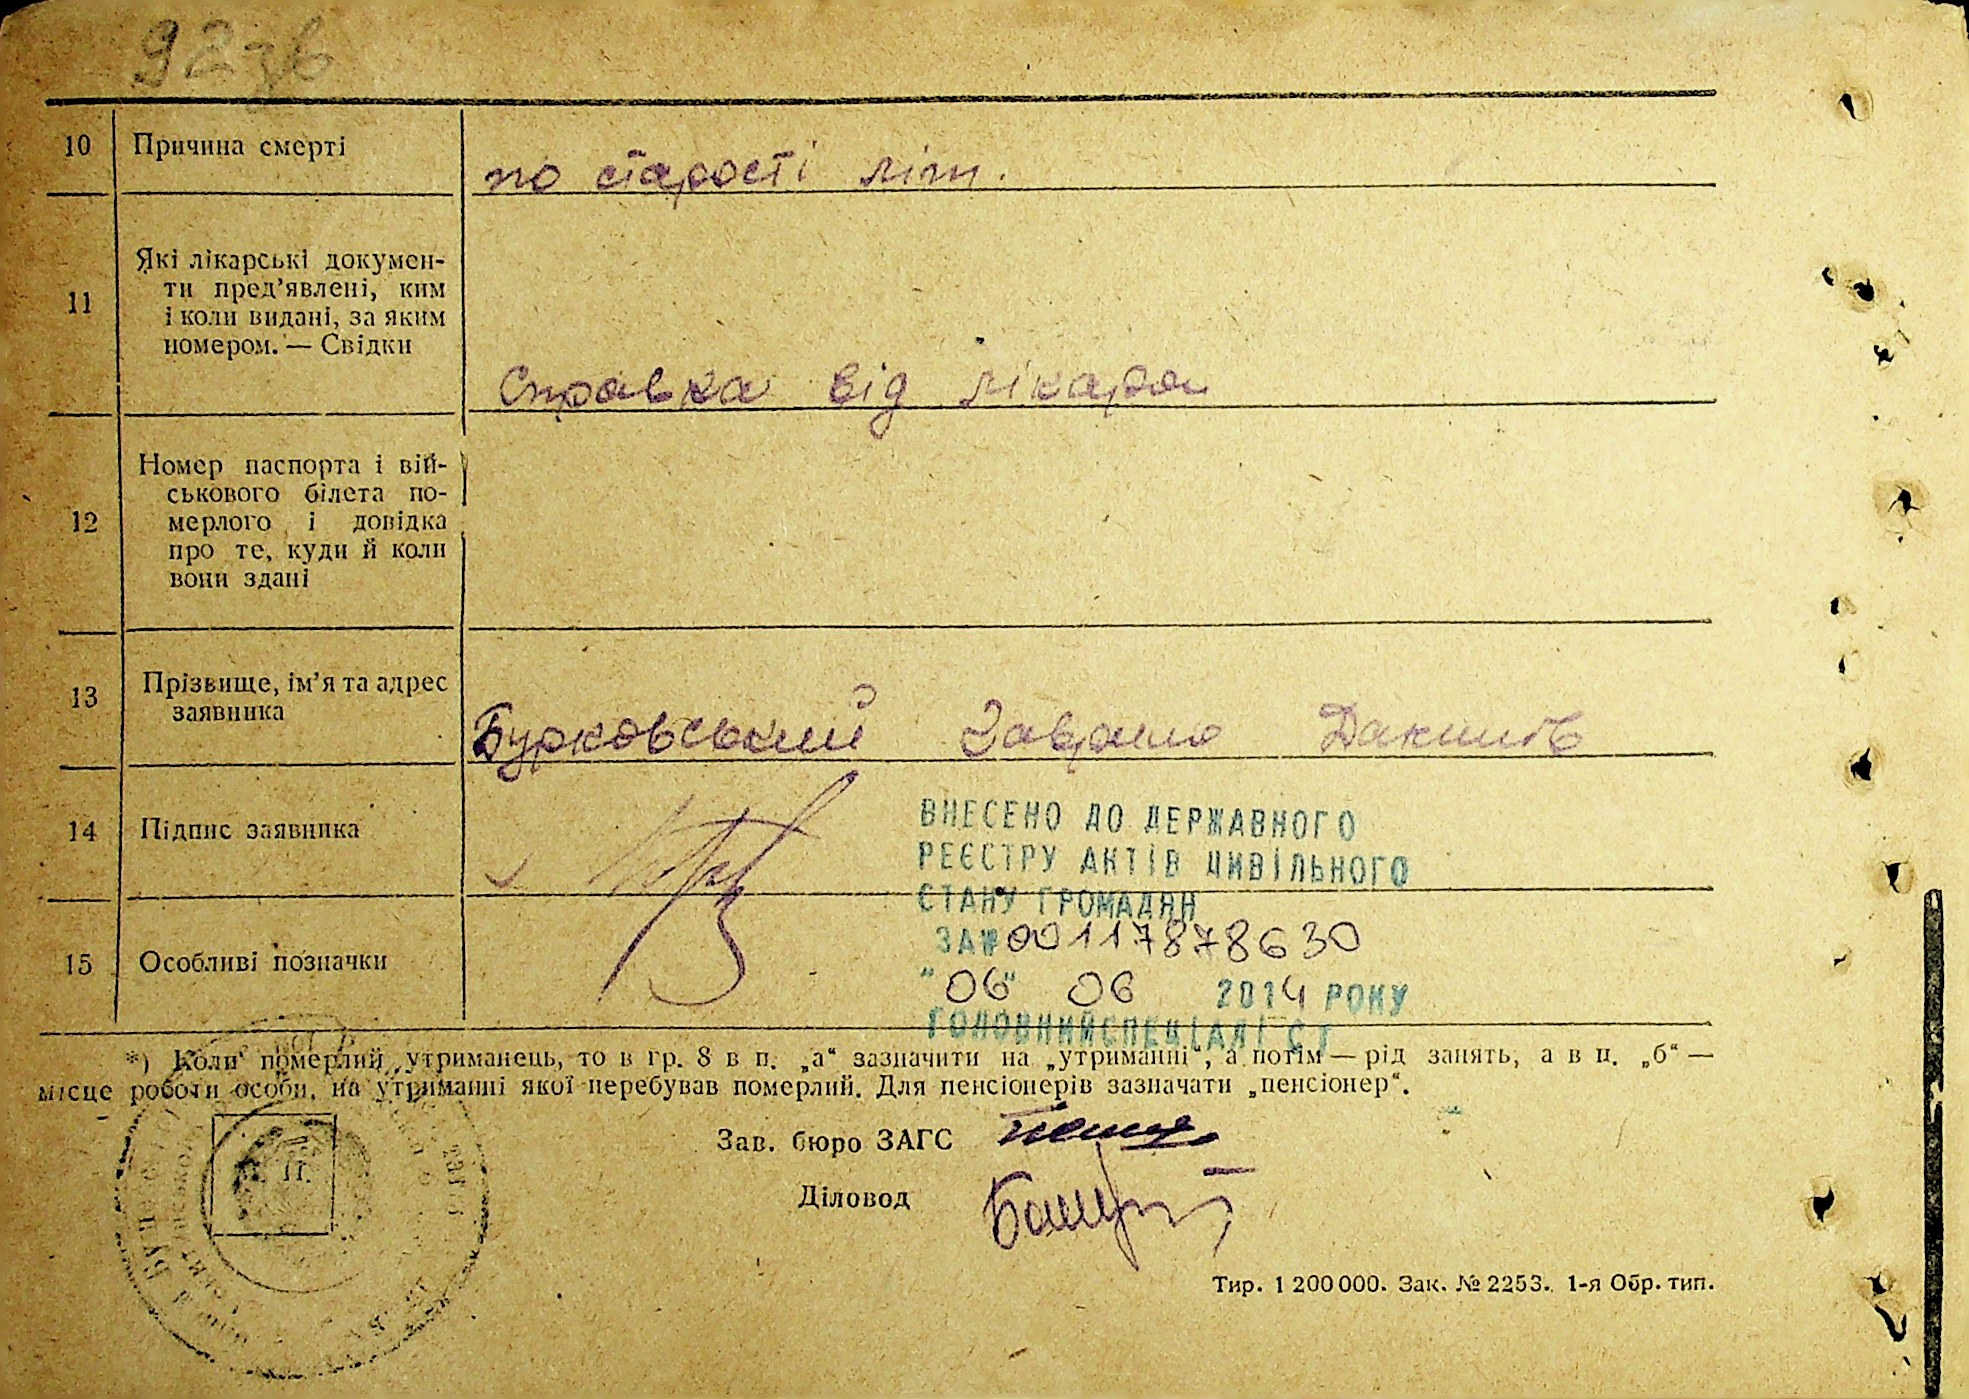 92зв
10 Причина смерті по старості літ.
11 Які лікарські докумен-
ти пред’явлені, ким
і коли видані, за яким
номером. — Свідки
Справка від лікаря
12 Номер паспорта і вій-
ськового білета по-
мерлого і довідка
про те, куди й коли
вони здані
13 Прізвище, ім’я та адрес
заявника
Бурковський
14 Підпис заявника
15 Особливі позначки
ВНЕСЕНО ДО ДЕРЖАВНОГО
РЕЄСТРУ АКТІВ ЦИВІЛЬНОГО
СТАНУ ГРОМАДЯН
ЗА № 00117878630
"06" 06 2014 РОКУ
ГОЛОВНИЙ СПЕЦІАЛІСТ
*) Коли померлий утриманець, то в гр. 8 в п. „а“ зазначити на „утриманні“, а потім — рід занять, а в п. „б“ —
місце роботи особи, на утриманні якої перебував померлий. Для пенсіонерів зазначати „пенсіонер“.
Зав. бюро ЗАГС
Діловод
П.
Тир. 1 200 000. Зак. № 2253. 1-я Обр. тип.